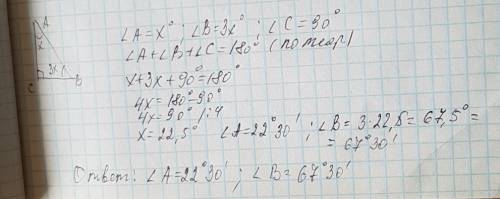 A
x
3x
C
B
∠A=x°; ∠B=3x°; ∠C=90°
∠A+∠B+∠C=180° (по теор)
x+3x+90°=180°
4x=180°-90°
4x=90° /:4
x=22,5° ∠A=22°30'; ∠B=3·22,5=67,5°=
=67°30'
Ответ: ∠A=22°30'; ∠B=67°30'